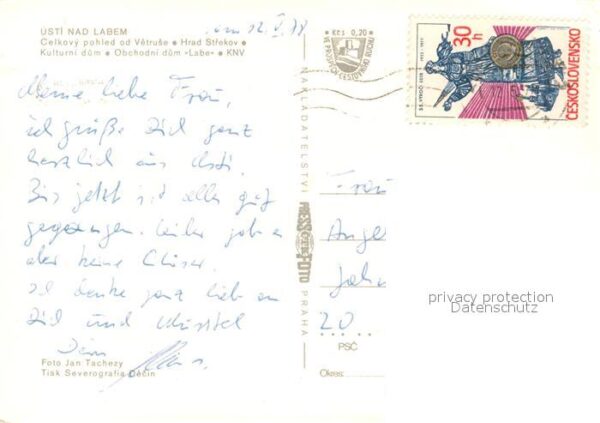 ÚSTÍ NAD LABEM
Celkový pohled od Větruše • Hrad Střekov •
Kulturní dům • Obchodní dům »Labe« • KNV
12. V. 78
Meine liebe Frau,
ich grüße Dich ganz
herzlich aus Ústí.
Bis jetzt ist alles gut
gegangen. Leider gab es
aber keine
Ich denke ganz lieb an
Dich und
Dein
Foto Jan Tachezy
Tisk Severografia Děčín
NAKLADATELSTVÍ
PRESSFOTO
PRAHA
Kčs 0,20
VE PROSPĚCH CESTOVNÍHO RUCHU
30h
ČESKOSLOVENSKO
Frau
Ange
Joh
20
PSČ
Okres:
privacy protection
Datenschutz